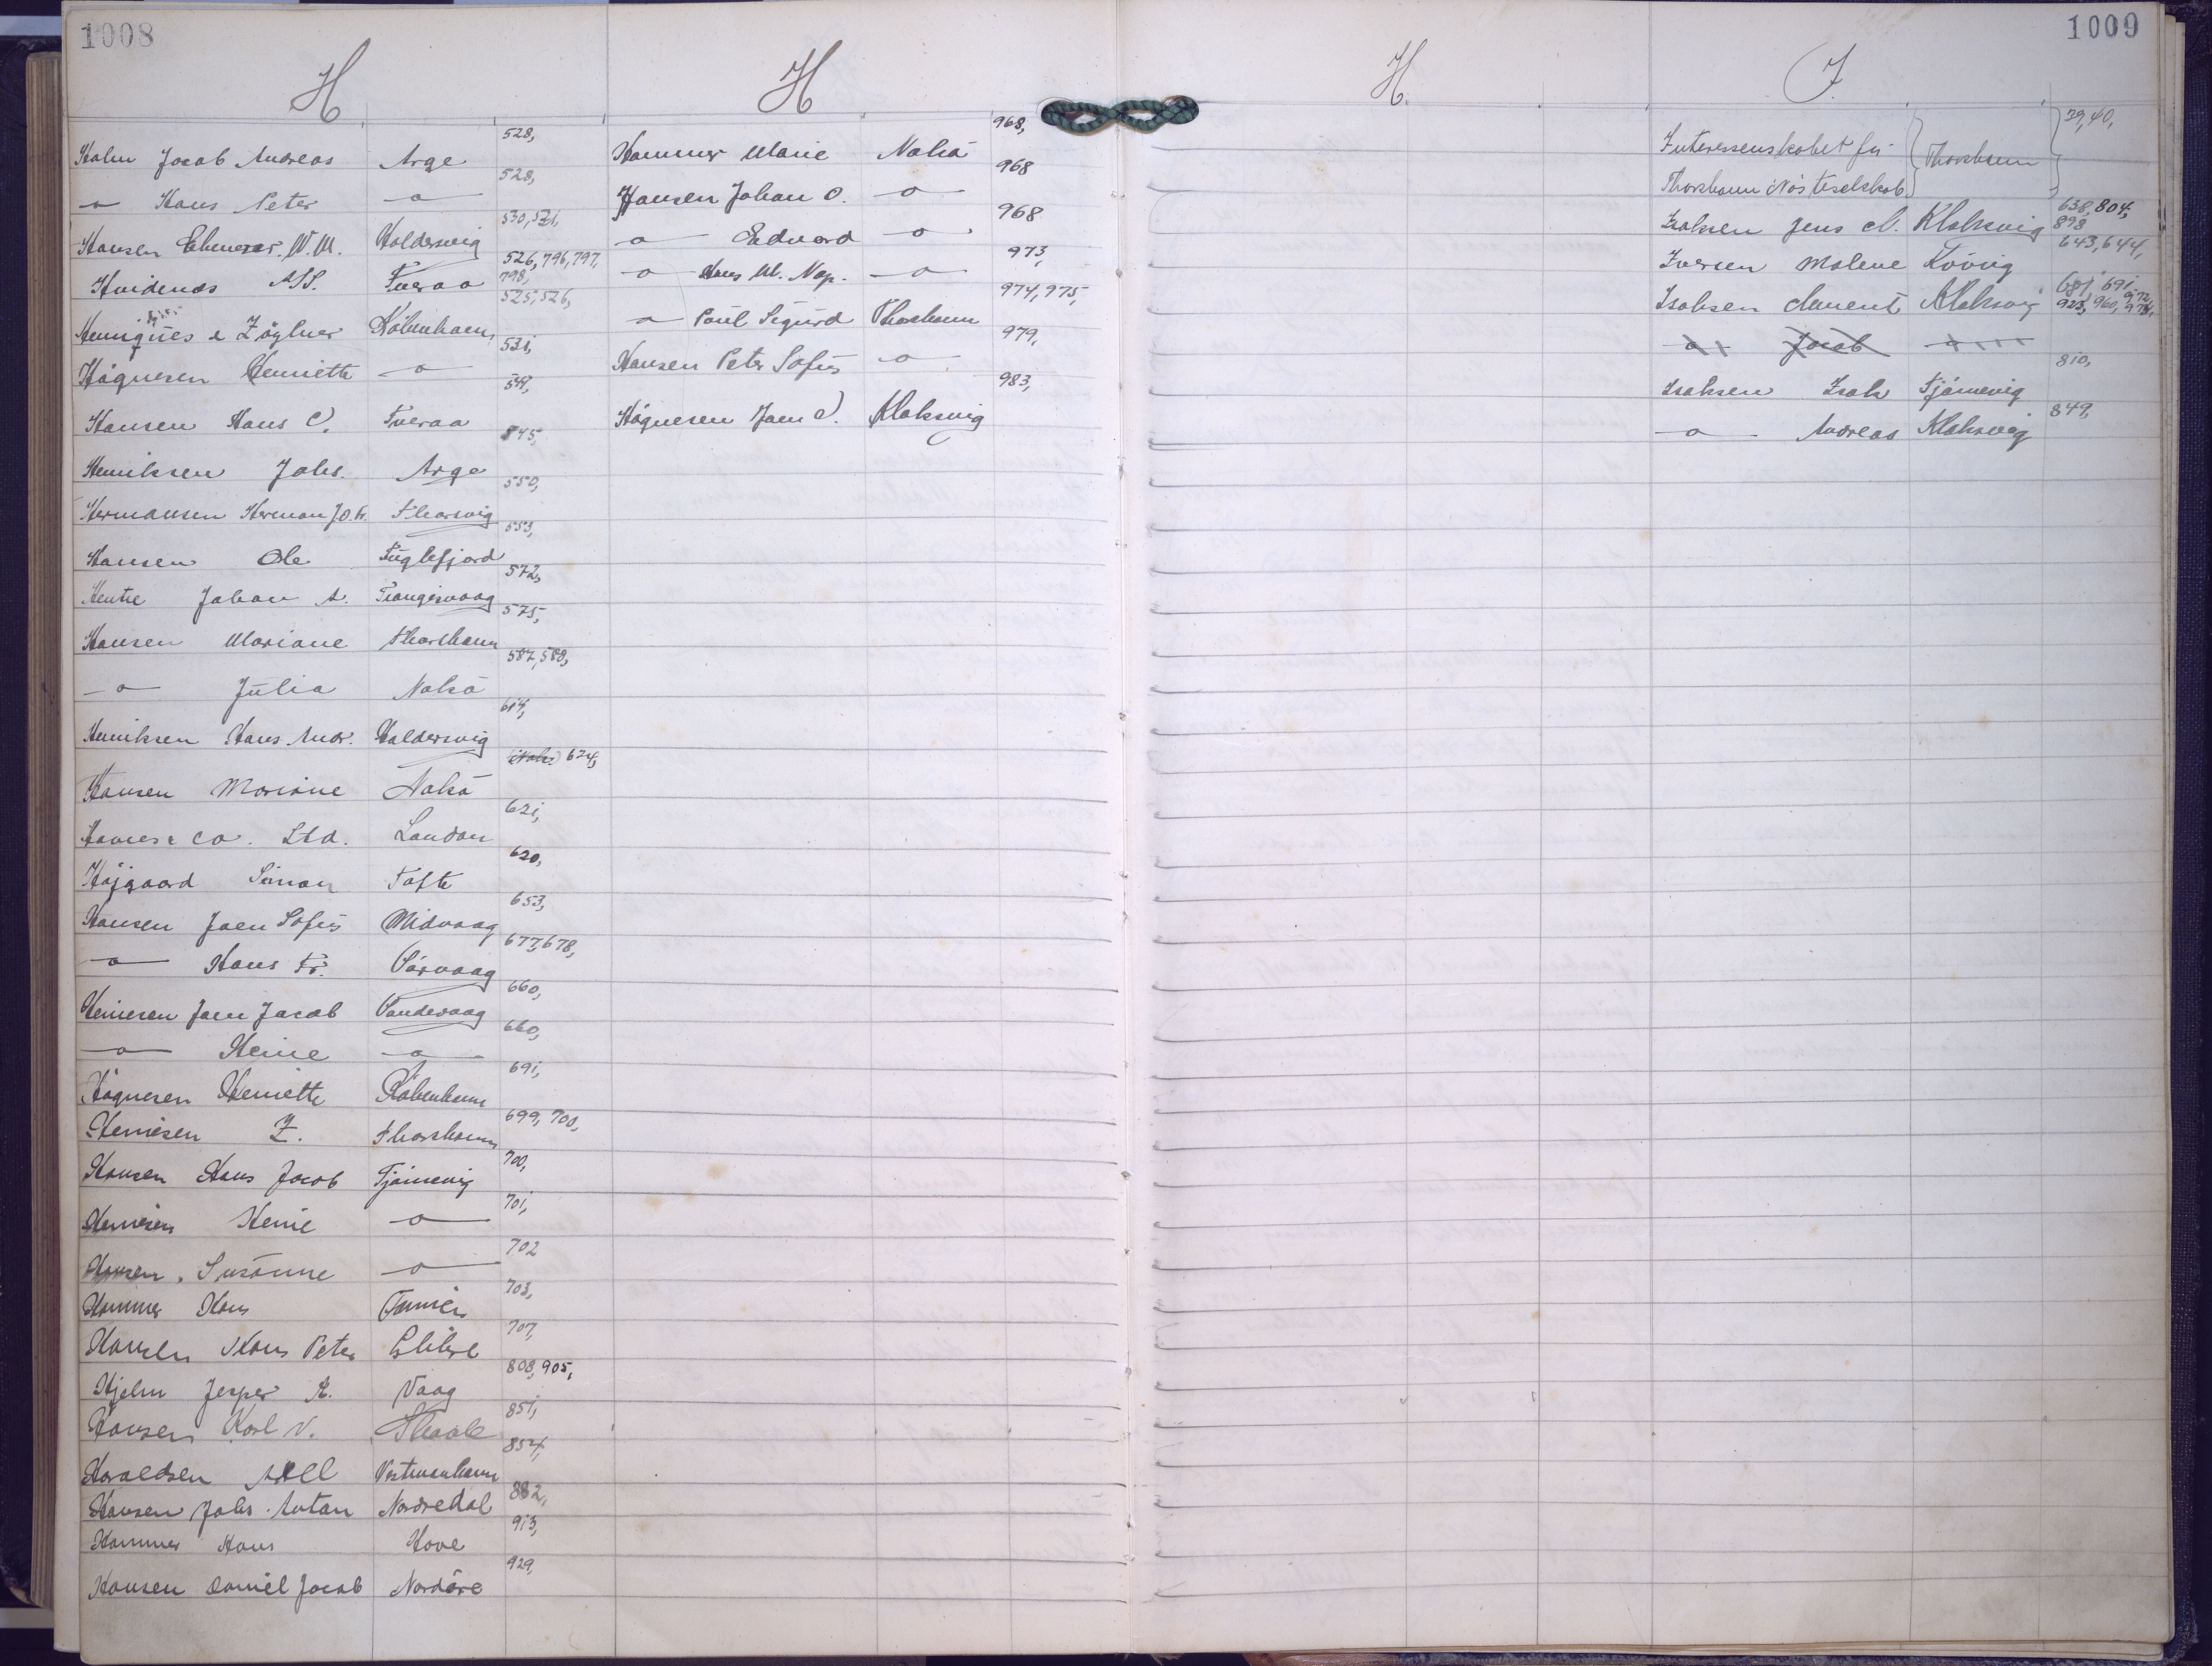 1008
H
Holm Jacob Andreas Arge 528,
-"- Hans Peter -"- 528,
Hansen Ebenezer. W. M. Haldersvig 530, 531,
Hvidenæs A/S. Tveraa 526, 796, 797, 798,
Henriques & Zøylner København 525, 526,
Høgnesen Henriette -"- 531,
Hansen Hans C. Tveraa 541,
Henriksen Johs. Arge 545,
Hermansen Herman Joh. Thorsvig 550,
Hansen Ole Fuglefjord 553,
Hentze Johan A. Trangisvaag 572,
Hansen Mariane Thorshavn 575,
-"- Julia Nolsö 587, 588,
Henriksen Hans Andr. Haldersvig 614,
Hansen Mariane Nolsö 624,
& Co. Ltd. London 621,
Højgaard Simon Tofte 620,
Hansen Joen Sofus Midvaag 653,
-"- Hans Fr. Sörvaag 677, 678,
Heinesen Joen Jacob Sandevaag 660,
-"- Heine -"- 660,
Høgnesen Henriette København 691,
Heinesen Z. Thorshavn 699, 700,
Hansen Hans Jacob Tjörnevig 700,
Heinesen Heine -"- 701,
Hansen, Susanne -"- 702
Hammer Hans Famien 703,
Hansen Hans Peter Glibre 707,
Hjelm Jesper A. Vaag 808, 905,
Hansen Karl V. Skaale 851,
Haraldsen Vestmanhavn 854,
Hansen Johs. Anton Nordredal 882,
Hammer Hans Hove 913,
Hansen Daniel Jacob Nordöre 929,
H
Hammer Marie Nolsö 968,
Hansen Johan O. -"- 968
-"- Edvard -"- 968
-"- Hans M. Nap. -"- 973,
-"- Poul Sigurd Thorshavn 974, 975,
Hansen Peter Sofus -"- 979,
Høgnesen Joen J. Klaksvig 983,
1009
H.
I.
Interessenskabet for
Thorshavn Nösteselskab Thorshavn 39, 40,
Isaksen Jens M. Klaksvig 638, 804, 898
Iversen Malene Kvívig 643, 644,
Isaksen Clement Klaksvig 681, 691, 925, 960, 972, 978,
-"- Jacob -"-
Isaksen Isak Tjörnevig 810,
-"- Andreas Klaksvig 849,